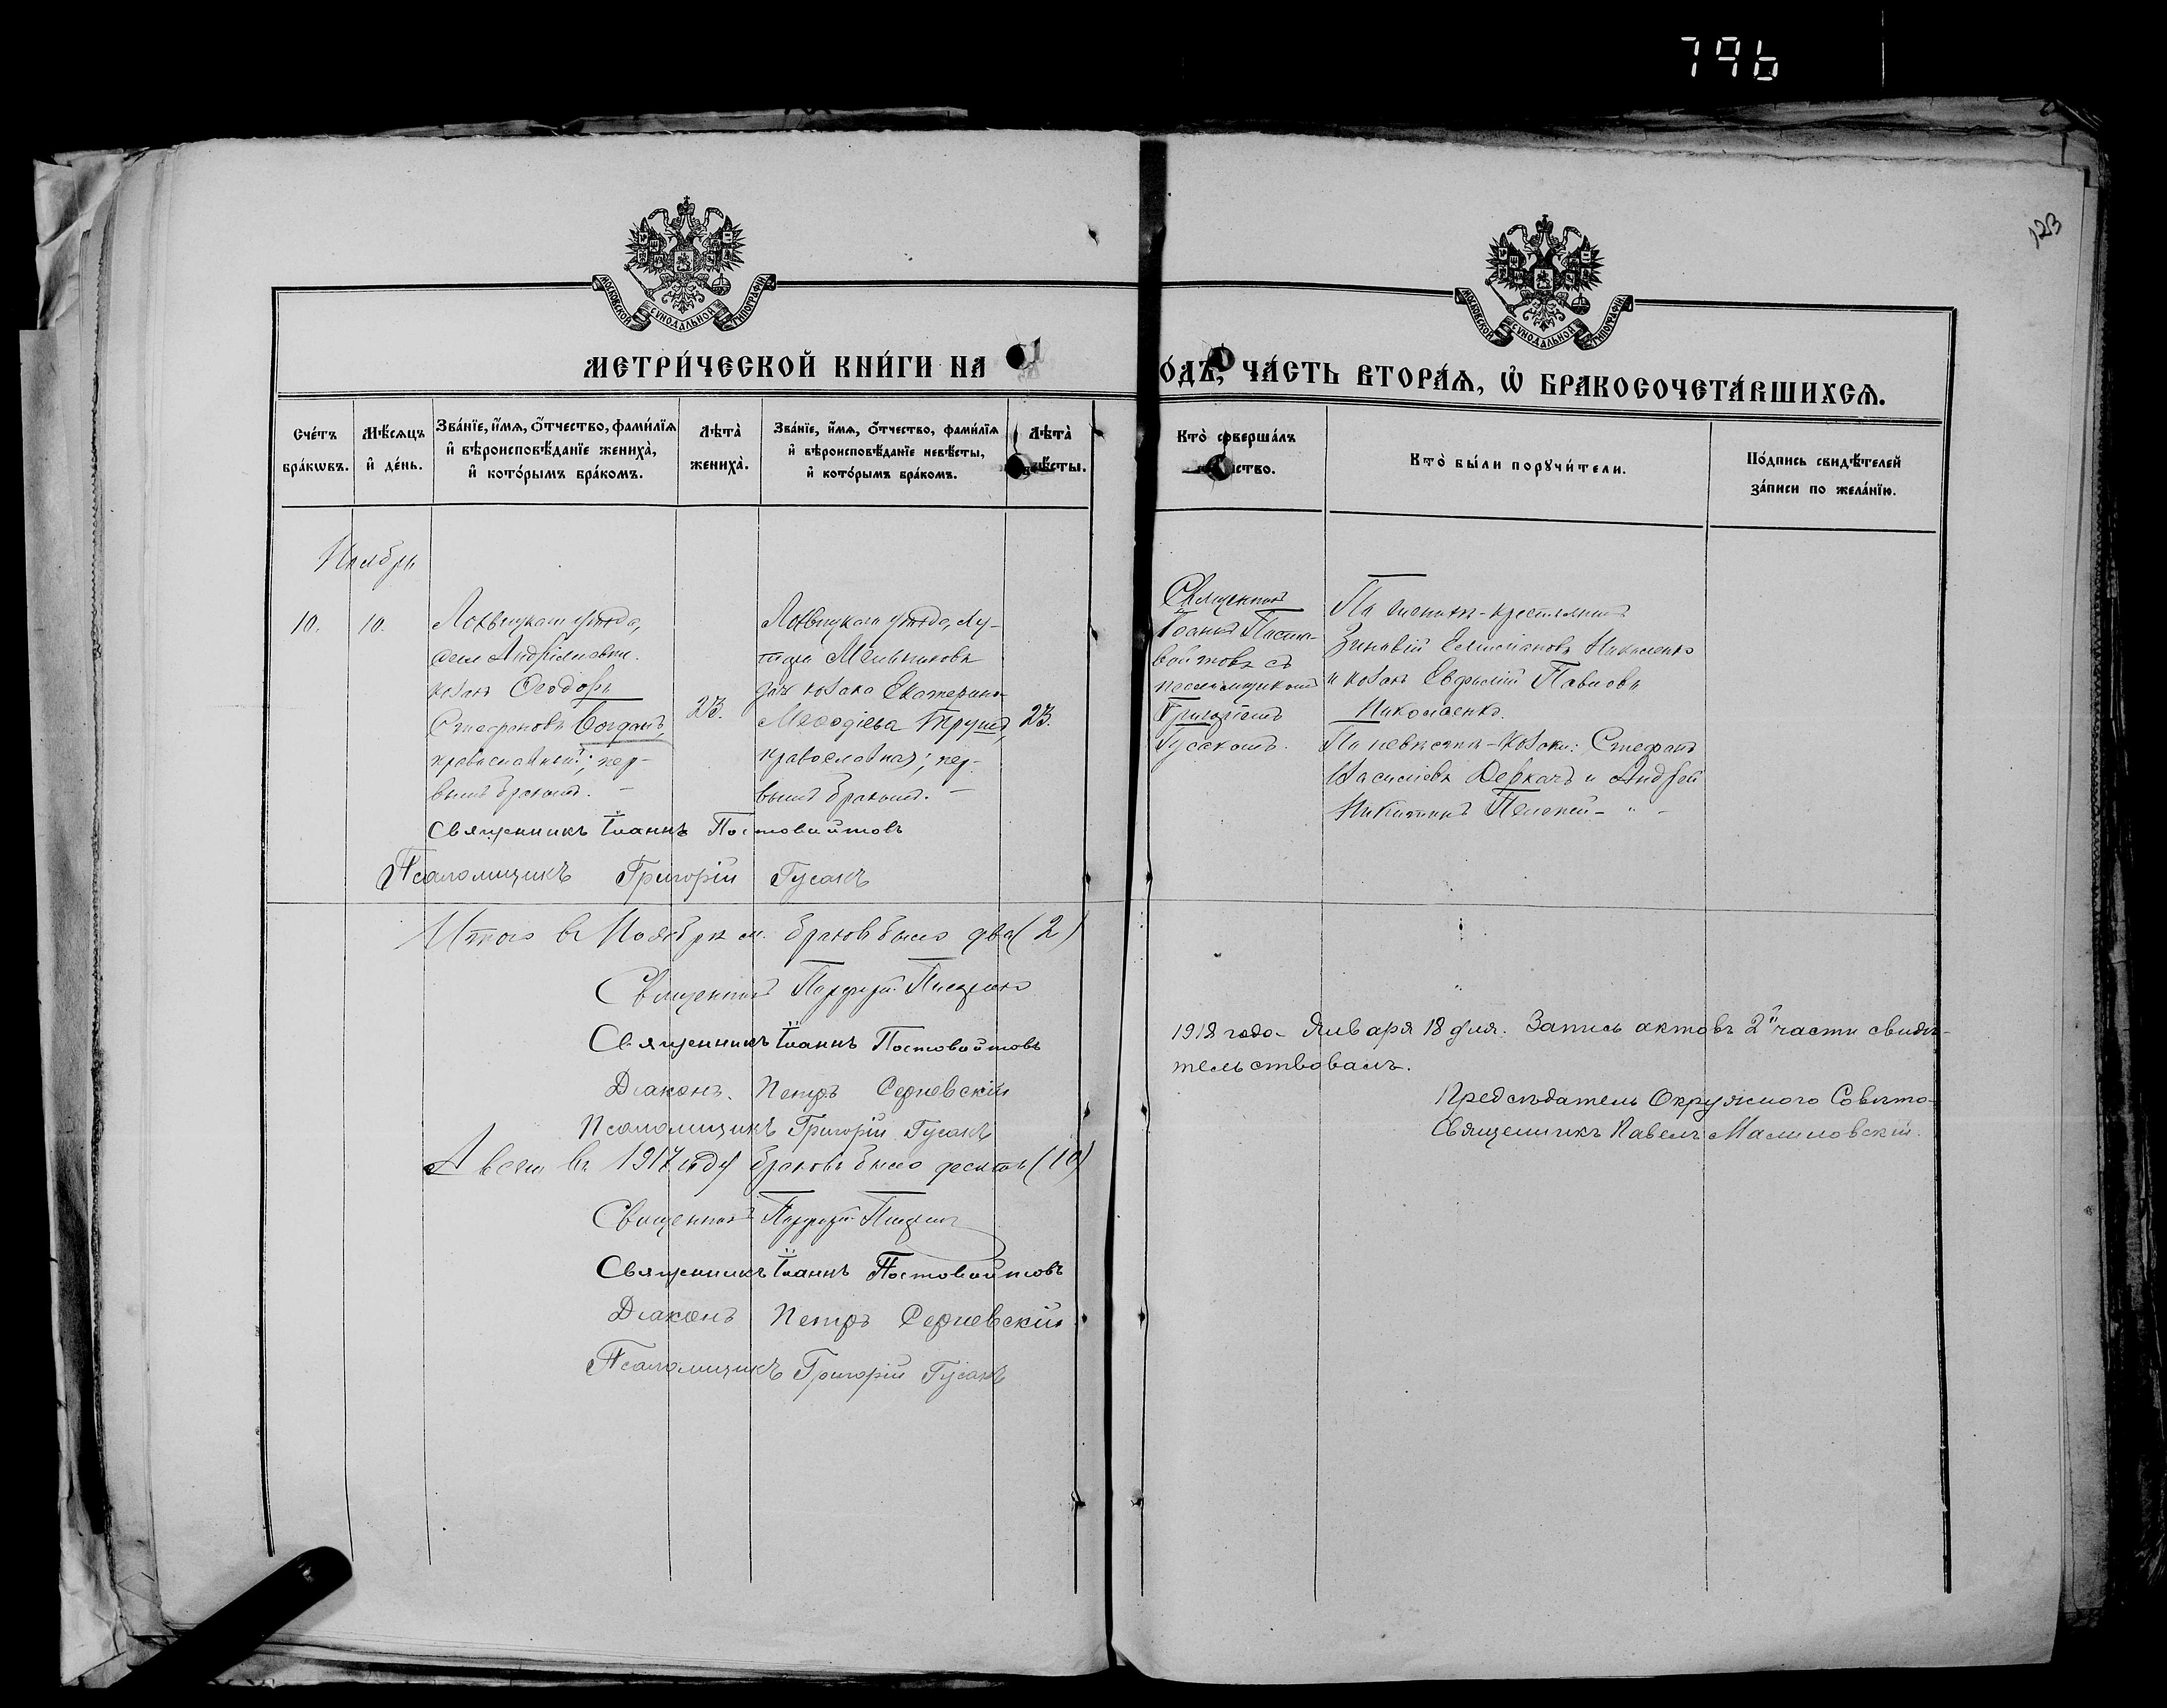 796
123
МОСКОВСКОЙ СѴНОДАЛЬНОЙ ТИПОГРАФІИ
МОСКОВСКОЙ СѴНОДАЛЬНОЙ ТИПОГРАФІИ
МЕТРИ́ЧЕСКОЙ КНИ́ГИ НА
ОДЪ, ЧА́СТЬ ВТОРА́Я, Ѿ БРАКОСОЧЕТА́ВШИХСЯ.
Сче́тъ бра́кѡвъ.
Мѣ́сяцъ и҆ де́нь.
Зва́нїе, и҆́мя, ѻ҆́тчество, фами́лїя и҆ вѣроисповѣ́данїе жениха̀, и҆ кото́рымъ бра́комъ.
Лѣта̀ жениха̀.
Зва́нїе, и҆́мя, ѻ҆́тчество, фами́лїя и҆ вѣроисповѣ́данїе невѣ́сты, и҆ кото́рымъ бра́комъ.
Лѣта̀ невѣ́сты.
Кто̀ соверша́лъ
ство.
Кто̀ бы́ли порꙋчи́тели.
По́дпись свидѣ́телей за́писи по жела́нїю.
Ноябрь
10.
10.
Лохвицкаго уѣзда,
села Андріяшевки
козакъ Ѳеодоръ
Стефановъ Богданъ,
православный; пер-
вымъ бракомъ. –
23.
Лохвицкаго уѣзда, ху-
тора Мельникова
дочь козака Екатерина
Меѳодіева Трушъ,
православная; пер-
вымъ бракомъ. –
23.
Священникъ
Іоаннъ Посто-
войтовъ съ
псаломщикомъ
Григоріемъ
Гусакомъ.
По женихѣ – крестьянинъ
Зиновій Николаенко
и козакъ Евфимій Павловъ
Николаенко.
По невѣстѣ – козаки: Стефанъ
Васильевъ Деркачъ и Андрей
Никитинъ Пелепей –
Священникъ Іоаннъ Постовойтовъ
Псаломщикъ Григорій Гусакъ
Итого въ Ноябрѣ м. браковъ было два (2)
Священникъ Порфирій
Священникъ Іоаннъ Постовойтовъ
Діаконъ Петръ
Псаломщикъ Григорій Гусакъ
А всего въ 1917 году браковъ было десять (10)
Священникъ Порфирій
Священникъ Іоаннъ Постовойтовъ
Діаконъ Петръ
Псаломщикъ Григорій Гусакъ
1918 года Января 18 дня. Запись актовъ 2й части свидѣ-
тельствовалъ.
Предсѣдатель Окружного Совѣта
Священникъ Павелъ Малиновскій.